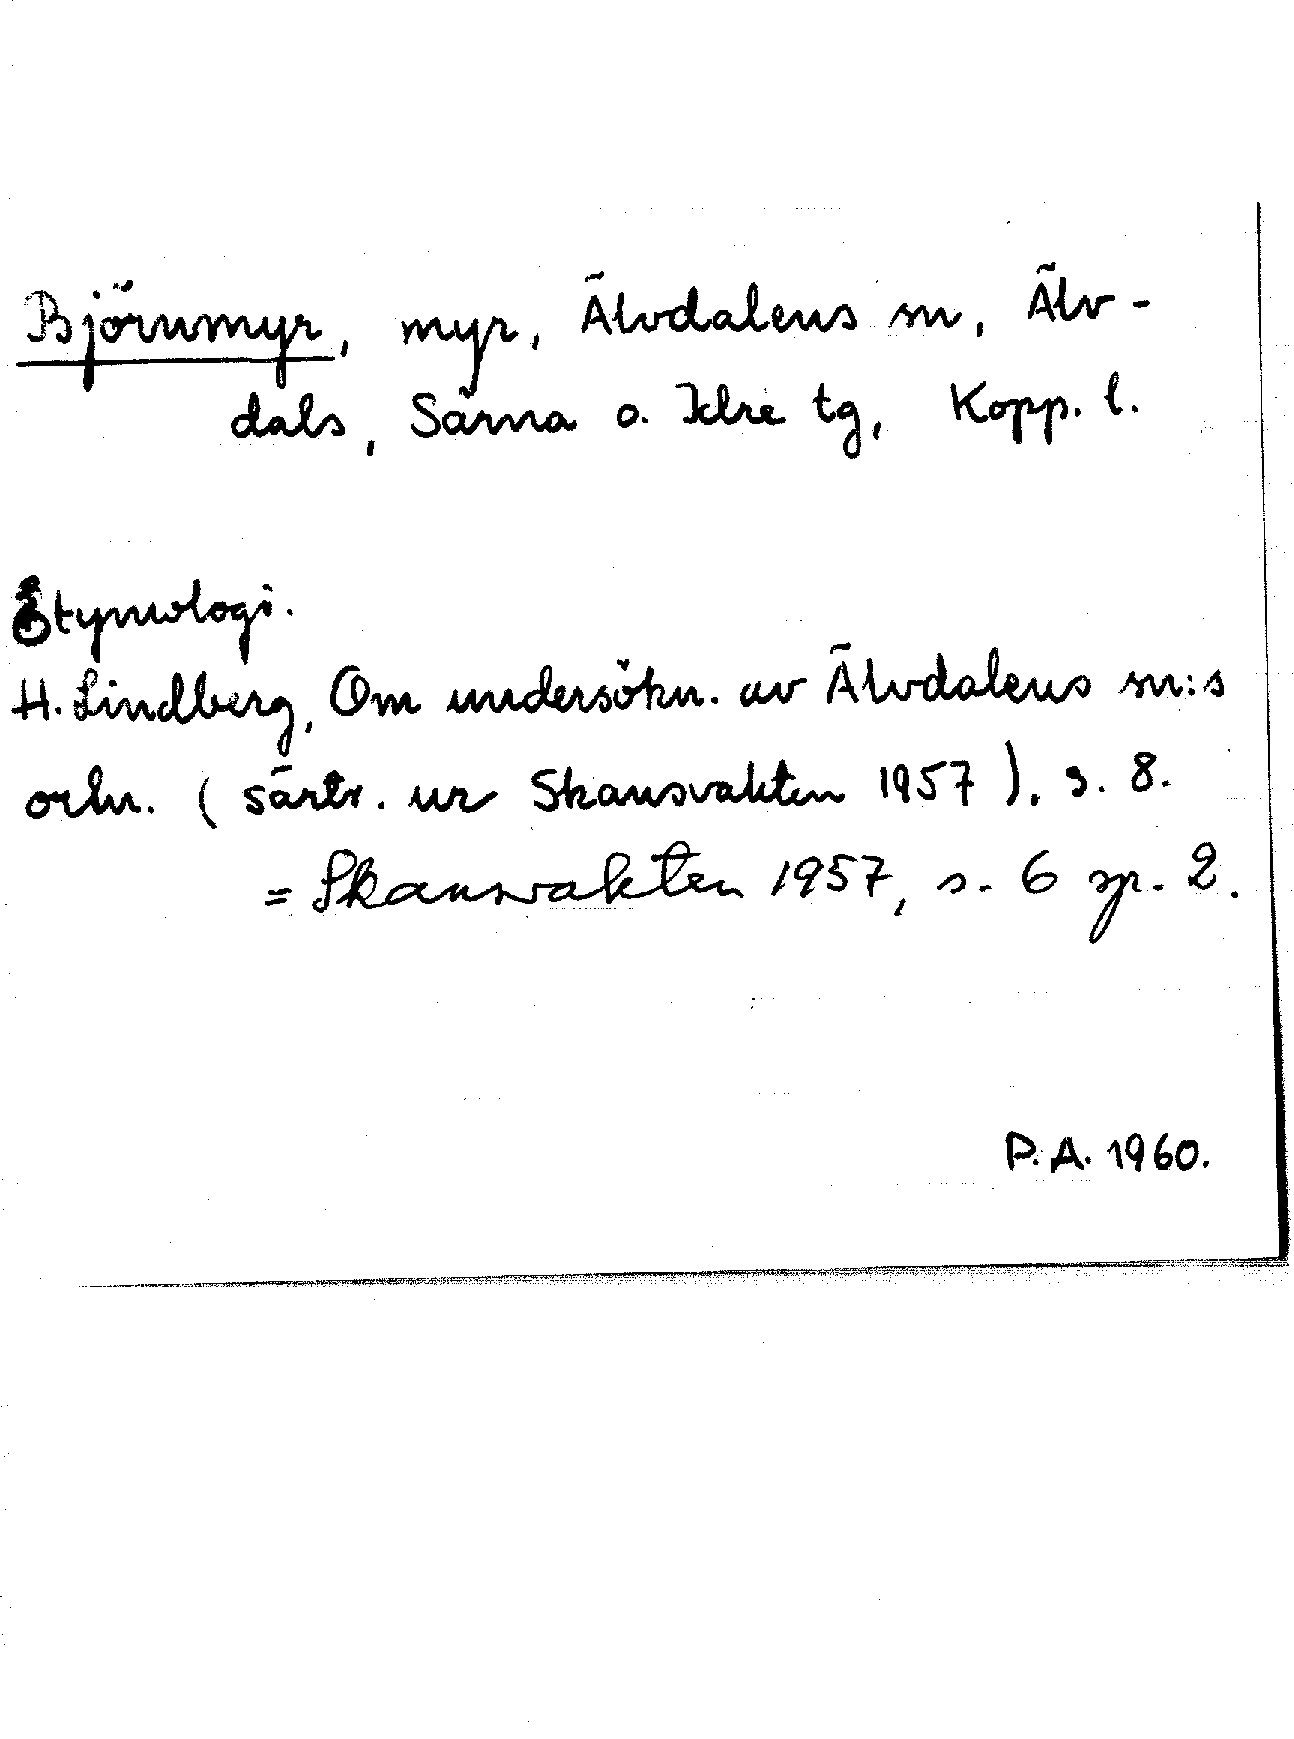 Björnmyr, myr, Älvdalens sn, Älv-
dals, Särna o. Idre tg, Kopp. l.
Etymologi.
H. Lindberg, Om undersökn. av Älvdalens sn:s
ortn. (särtr. ur Skansvakten 1957), s. 8.
= Skansvakten 1957, s. 6 sp. 2.
P.A. 1960.